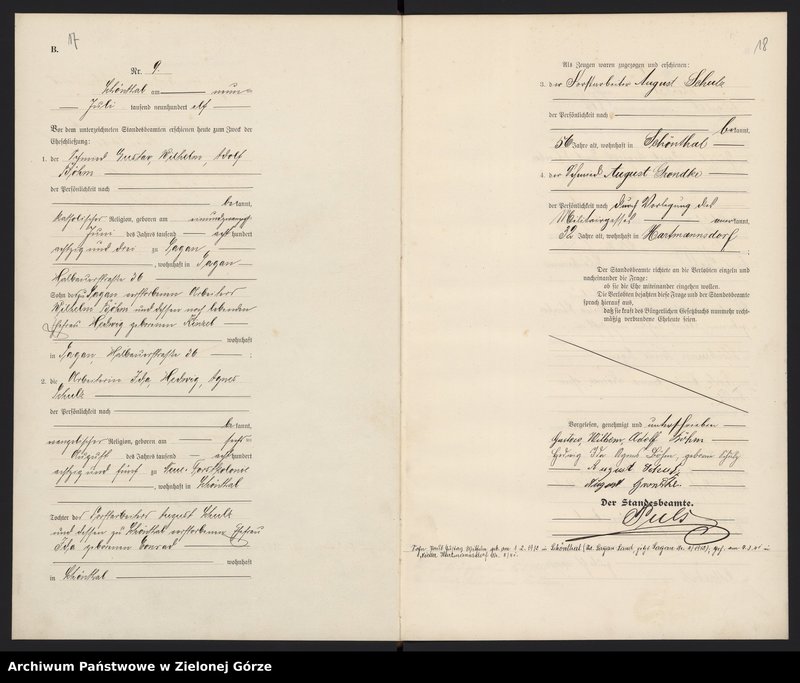 B.
17
Nr. 9
Schönthal am neun-
Juli tausend neunhundert elf
Vor dem unterzeichneten Standesbeamten erschienen heute zum Zweck der
Eheschließung:
1. der Schmied Gustav, Wilhelm, Adolf
Böhm
der Persönlichkeit nach
bekannt,
katholischer Religion, geboren am
Juni des Jahres tausend acht hundert
achtzig und drei zu Sagan
, wohnhaft in Sagan
Halbauerstraße 36
Sohn des zu Sagan verstorbenen Arbeiters
Wilhelm Böhm und dessen noch lebenden
Ehefrau Hedwig geborenen
wohnhaft
in Sagan Halbauerstraße 36 ;
2. die Arbeiterin Ida, Hedwig, Agnes
Schulz
der Persönlichkeit nach
bekannt,
evangelischer Religion, geboren am
August des Jahres tausend acht hundert
achtzig und fünf zu Neu-Forstkolonie
, wohnhaft in Schönthal
Tochter des Forstarbeiters August Schulz
und dessen zu Schönthal verstorbenen Ehefrau
Ida geborenen Conrad
wohnhaft
in Schönthal
18
Als Zeugen waren zugezogen und erschienen:
3. der Forstarbeiter August Schulz
der Persönlichkeit nach
bekannt,
56 Jahre alt, wohnhaft in Schönthal
4. der Schmied August
der Persönlichkeit nach durch Vorlegung des
Militairpasses anerkannt,
32 Jahre alt, wohnhaft in Hartmannsdorf
Der Standesbeamte richtete an die Verlobten einzeln und
nacheinander die Frage:
ob sie die Ehe miteinander eingehen wollen.
Die Verlobten bejahten diese Frage und der Standesbeamte
sprach hierauf aus,
daß sie kraft des Bürgerlichen Gesetzbuchs nunmehr recht-
mäßig verbundene Eheleute seien.
Vorgelesen, genehmigt und unterschrieben
Gustav Wilhelm Adolf Böhm
Hedwig Ida Agnes Böhm, geborene Schulz
August Schulz
August
Der Standesbeamte.
Puls
Archiwum Państwowe w Zielonej Górze